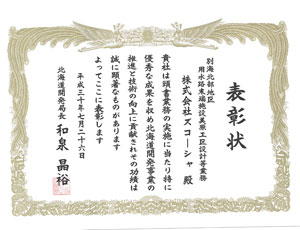 表彰状
別海北部地区
用水路末端施設美原工区設計等業務
株式会社ズコーシャ 殿
貴社は頭書業務の実施に当たり特に
優秀な成果を収め北海道開発事業の
推進と技術の向上に貢献されその功績は
誠に顕著なものがあります
よってここに表彰します
平成三十年七月二十六日
北海道開発局長 和泉晶裕